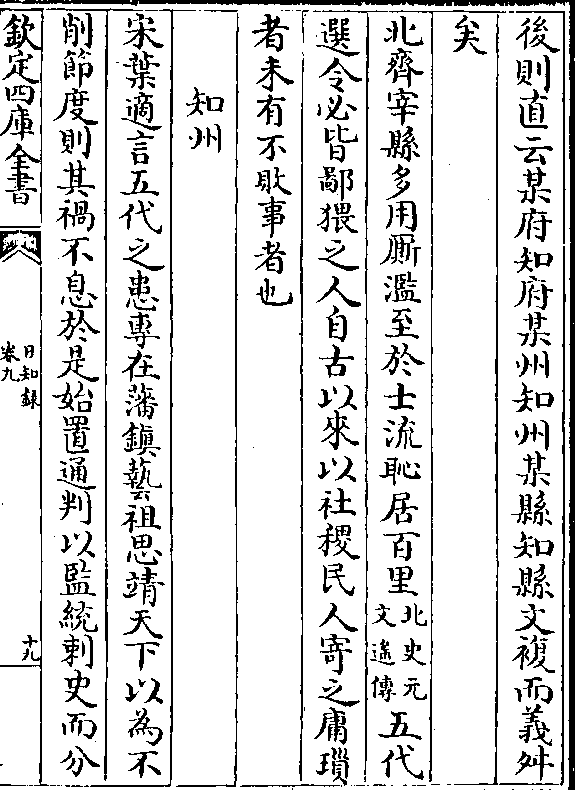 後則直云某府知府某州知州某縣知縣文複而義舛
矣
北齊宰縣多用厮濫至於士流恥居百里北史元文遙傳五代
選令必皆鄙猥之人自古以來以社稷民人寄之庸瑣
者未有不敗事者也
知州
宋葉適言五代之患專在藩鎮藝祖思靖天下以為不
削節度則其禍不息於是始置通判以監統刺史而分
欽定四庫全書
日知錄
卷九
十九